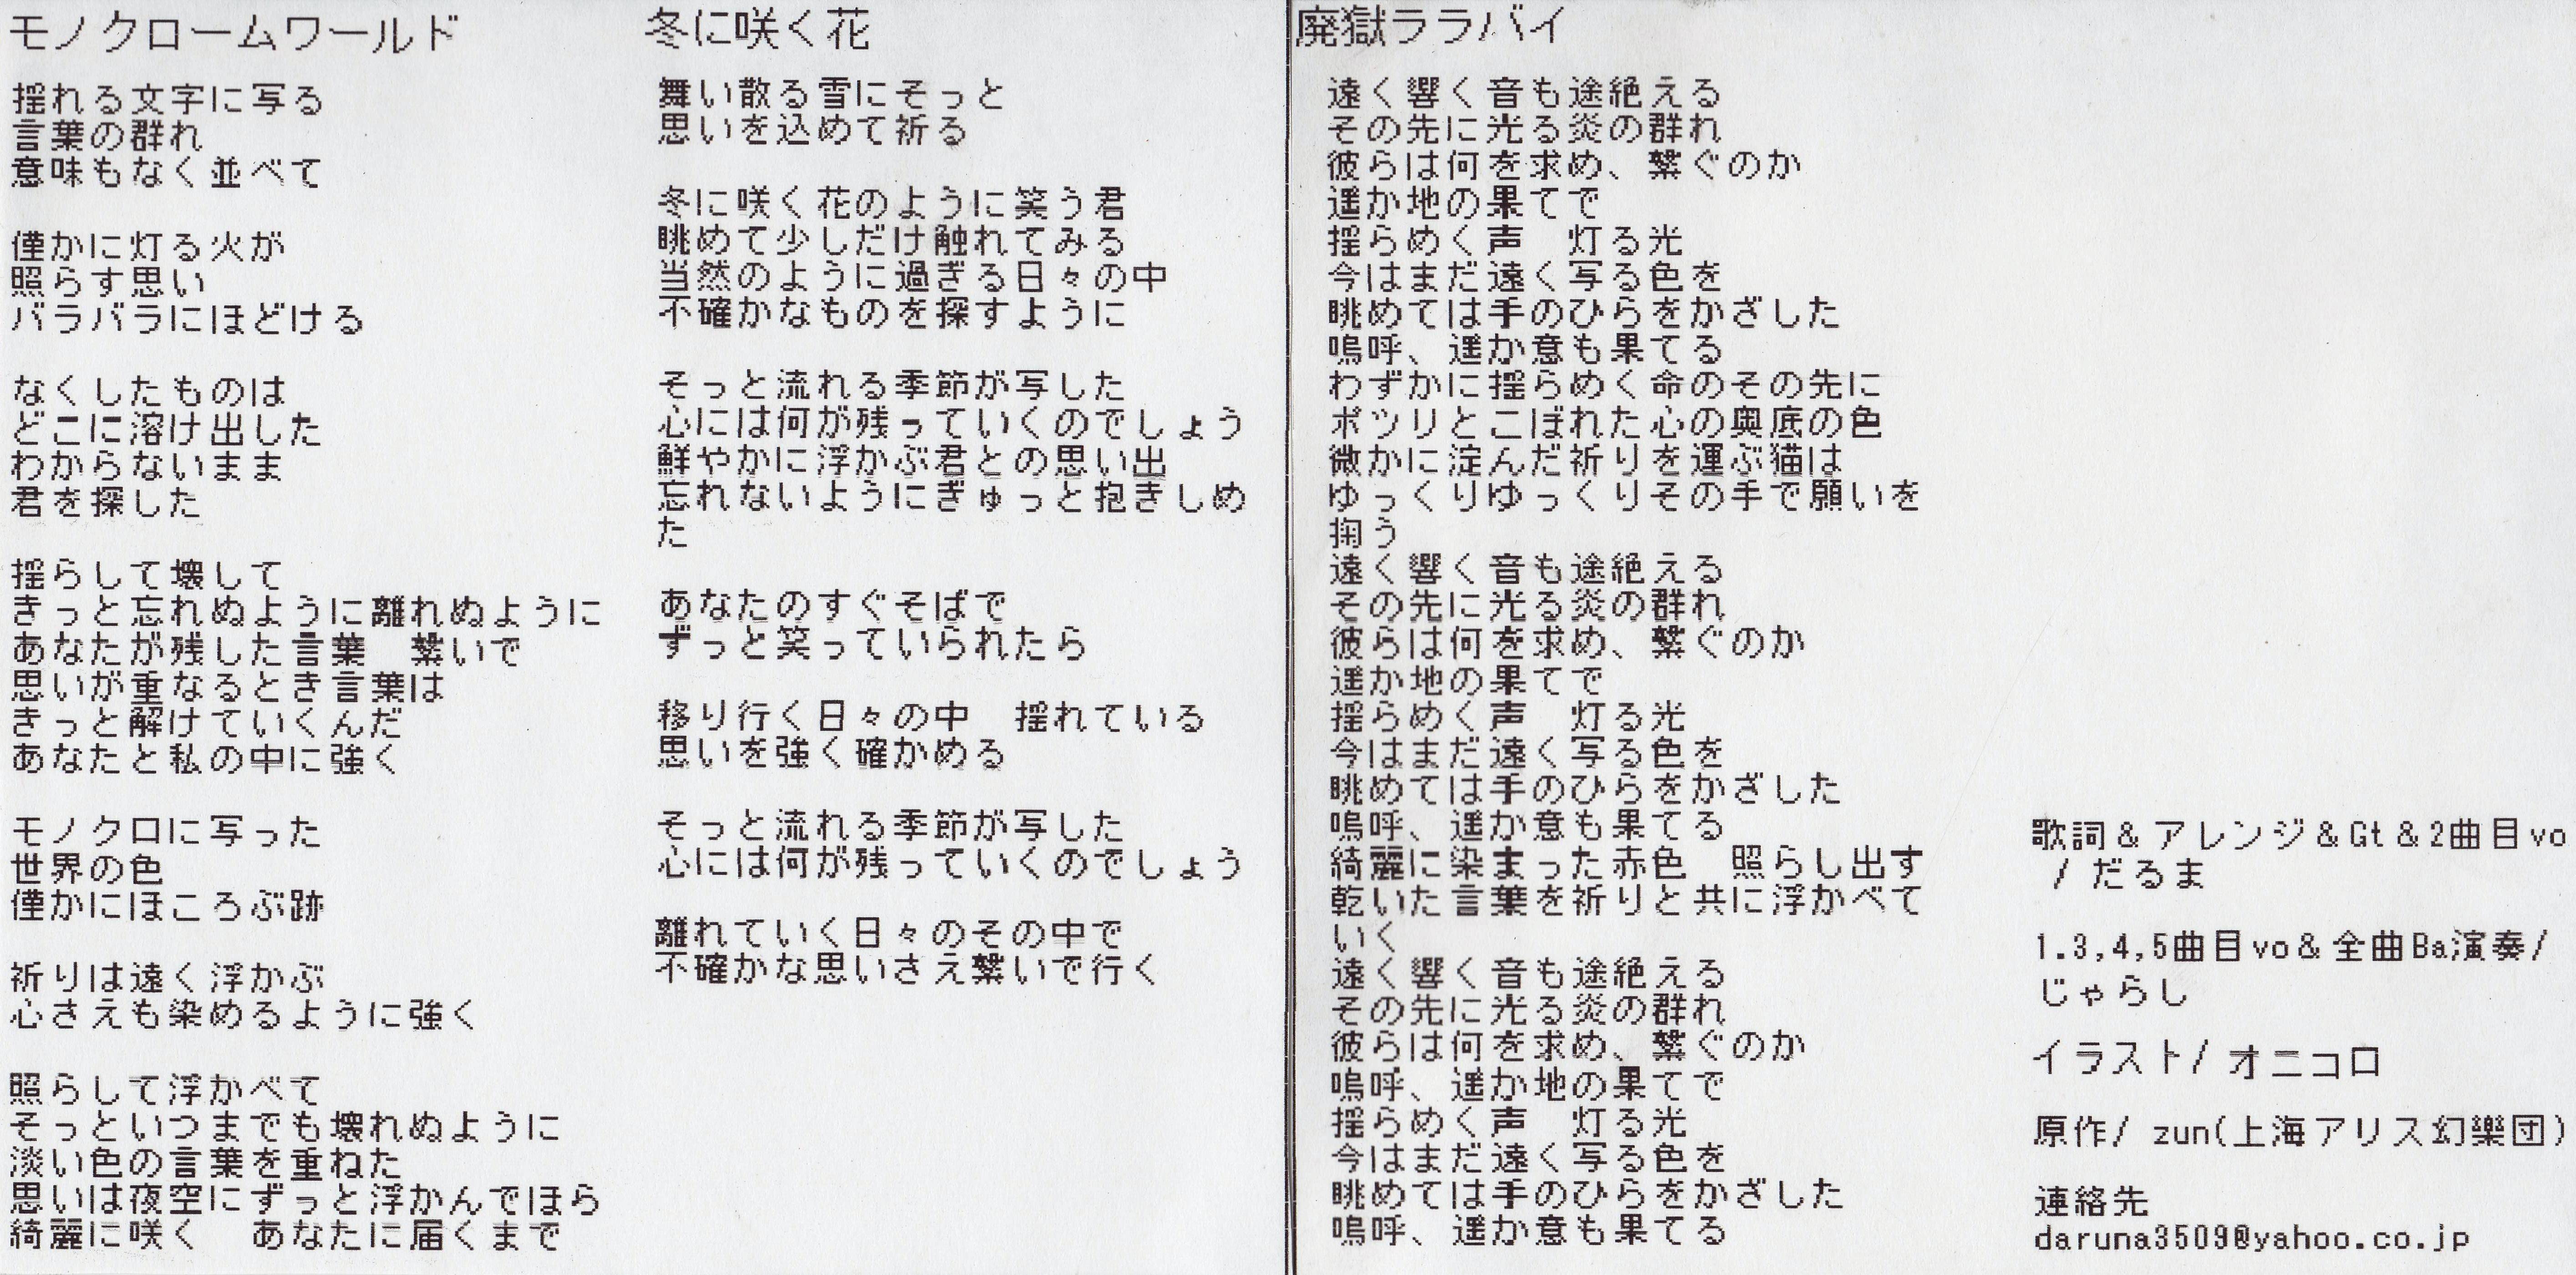 モノクロームワールド
揺れる文字に写る
言葉の群れ
意味もなく並べて
僅かに灯る火が
照らす思い
バラバラにほどける
なくしたものは
どこに溶け出した
わからないまま
君を探した
揺らして壊して
きっと忘れぬように離れぬように
あなたが残した言葉　繋いで
思いが重なるとき言葉は
きっと解けていくんだ
あなたと私の中に強く
モノクロに写った
世界の色
僅かにほころぶ跡
祈りは遠く浮かぶ
心さえも染めるように強く
照らして浮かべて
そっといつまでも壊れぬように
淡い色の言葉を重ねた
思いは夜空にずっと浮かんでほら
綺麗に咲く　あなたに届くまで
冬に咲く花
舞い散る雪にそっと
思いを込めて祈る
冬に咲く花のように笑う君
眺めて少しだけ触れてみる
当然のように過ぎる日々の中
不確かなものを探すように
そっと流れる季節が写した
心には何が残っていくのでしょう
鮮やかに浮かぶ君との思い出
忘れないようにぎゅっと抱きしめ
た
あなたのすぐそばで
ずっと笑っていられたら
移り行く日々の中　揺れている
思いを強く確かめる
そっと流れる季節が写した
心には何が残っていくのでしょう
離れていく日々のその中で
不確かな思いさえ繋いで行く
廃獄ララバイ
遠く響く音も途絶える
その先に光る炎の群れ
彼らは何を求め、繋ぐのか
遥か地の果てで
揺らめく声　灯る光
今はまだ遠く写る色を
眺めては手のひらをかざした
嗚呼、遥か意も果てる
わずかに揺らめく命のその先に
ポツリとこぼれた心の奥底の色
微かに淀んだ祈りを運ぶ猫は
ゆっくりゆっくりその手で願いを
掬う
遠く響く音も途絶える
その先に光る炎の群れ
彼らは何を求め、繋ぐのか
遥か地の果てで
揺らめく声　灯る光
今はまだ遠く写る色を
眺めては手のひらをかざした
嗚呼、遥か意も果てる
綺麗に染まった赤色　照らし出す
乾いた言葉を祈りと共に浮かべて
いく
遠く響く音も途絶える
その先に光る炎の群れ
彼らは何を求め、繋ぐのか
嗚呼、遥か地の果てで
揺らめく声　灯る光
今はまだ遠く写る色を
眺めては手のひらをかざした
嗚呼、遥か意も果てる
歌詞＆アレンジ＆Gt＆2曲目vo
/ だるま
1.3,4,5曲目vo＆全曲Ba演奏/
じゃらし
イラスト/ オニコロ
原作/ zun(上海アリス幻樂団)
連絡先
daruna3509@yahoo.co.jp